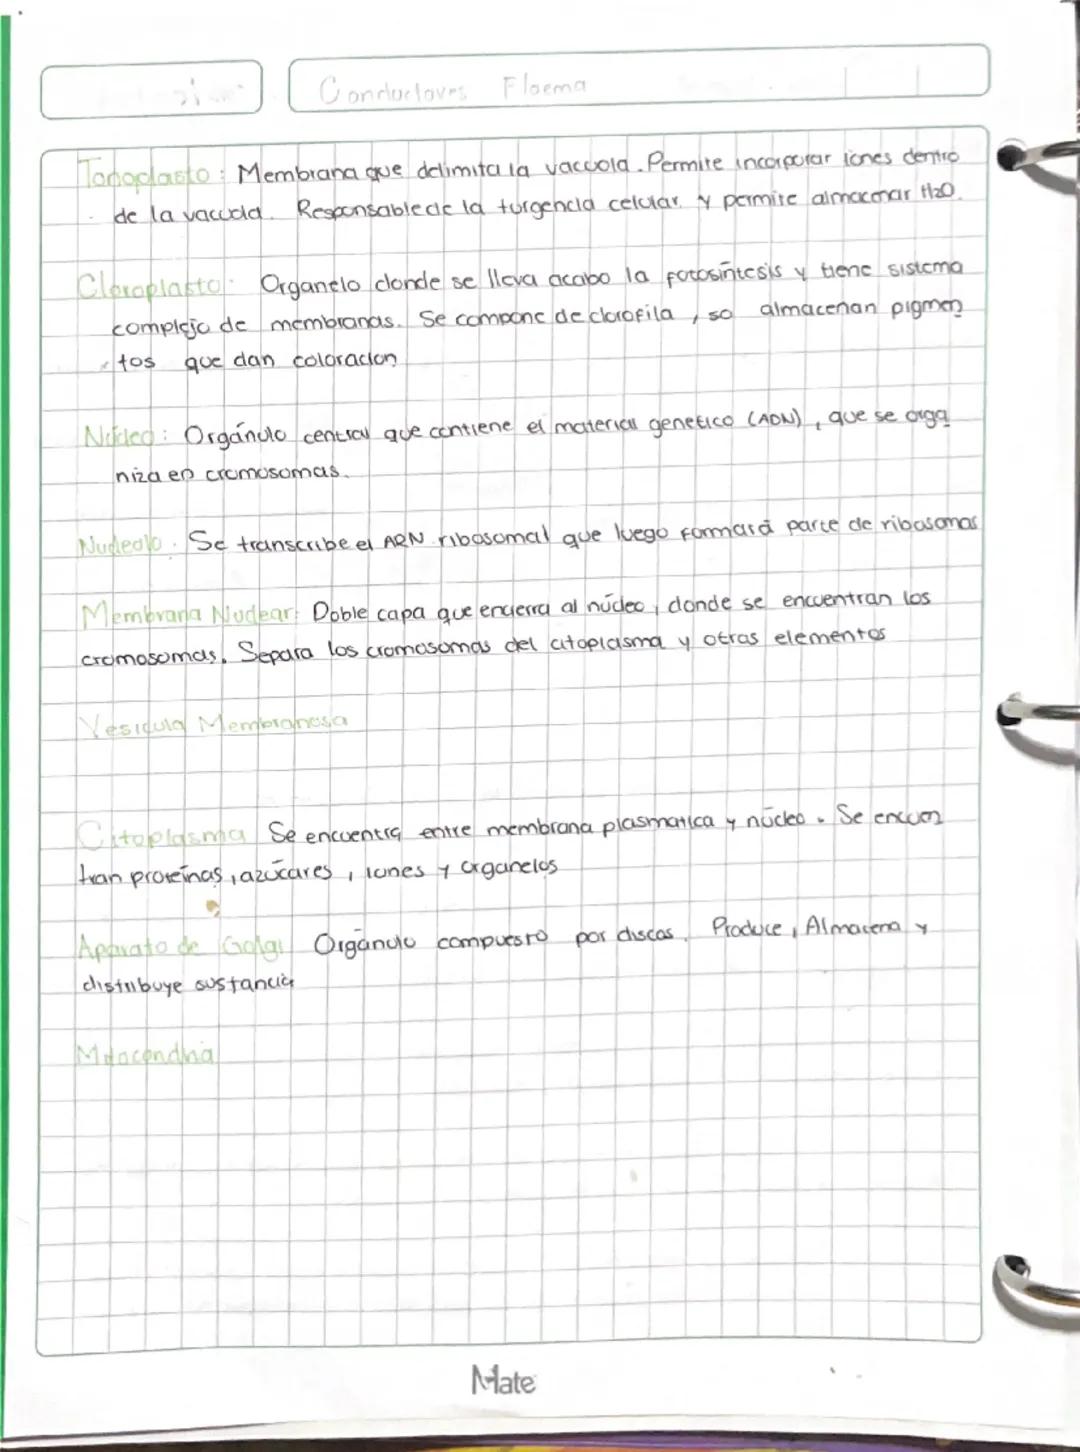 Conductores Floema
Tonoplasto: Membrana que delimita la vacuola. Permite incorporar iones dentro
de la vacuola. Responsable de la turgencia celular y permite almacenar H2O.
Cloroplasto: Organelo donde se lleva acabo la fotosíntesis y tiene sistema
complejo de membranas. Se compone de clorofila, so almacenan pigmen
tos que dan coloracion
Núcleo: Orgánulo central que contiene el material genetico (ADN), que se orga
niza en cromosomas.
Nucleolo. Se transcribe el ARN ribosomal que luego formará parte de ribosomas
Membrana Nuclear: Doble capa que encierra al núcleo, donde se encuentran los
cromosomas. Separa los cromosomas del citoplasma y otros elementos
Vesicula Membranosa
Citoplasma Se encuentra entre membrana plasmatica y núcleo. Se encuen
tran proteínas, azúcares, iones y organelos
Aparato de Golgi Orgánulo compuesto por discos. Produce, Almacena y
distribuye sustancia
Mitocondria
Mate